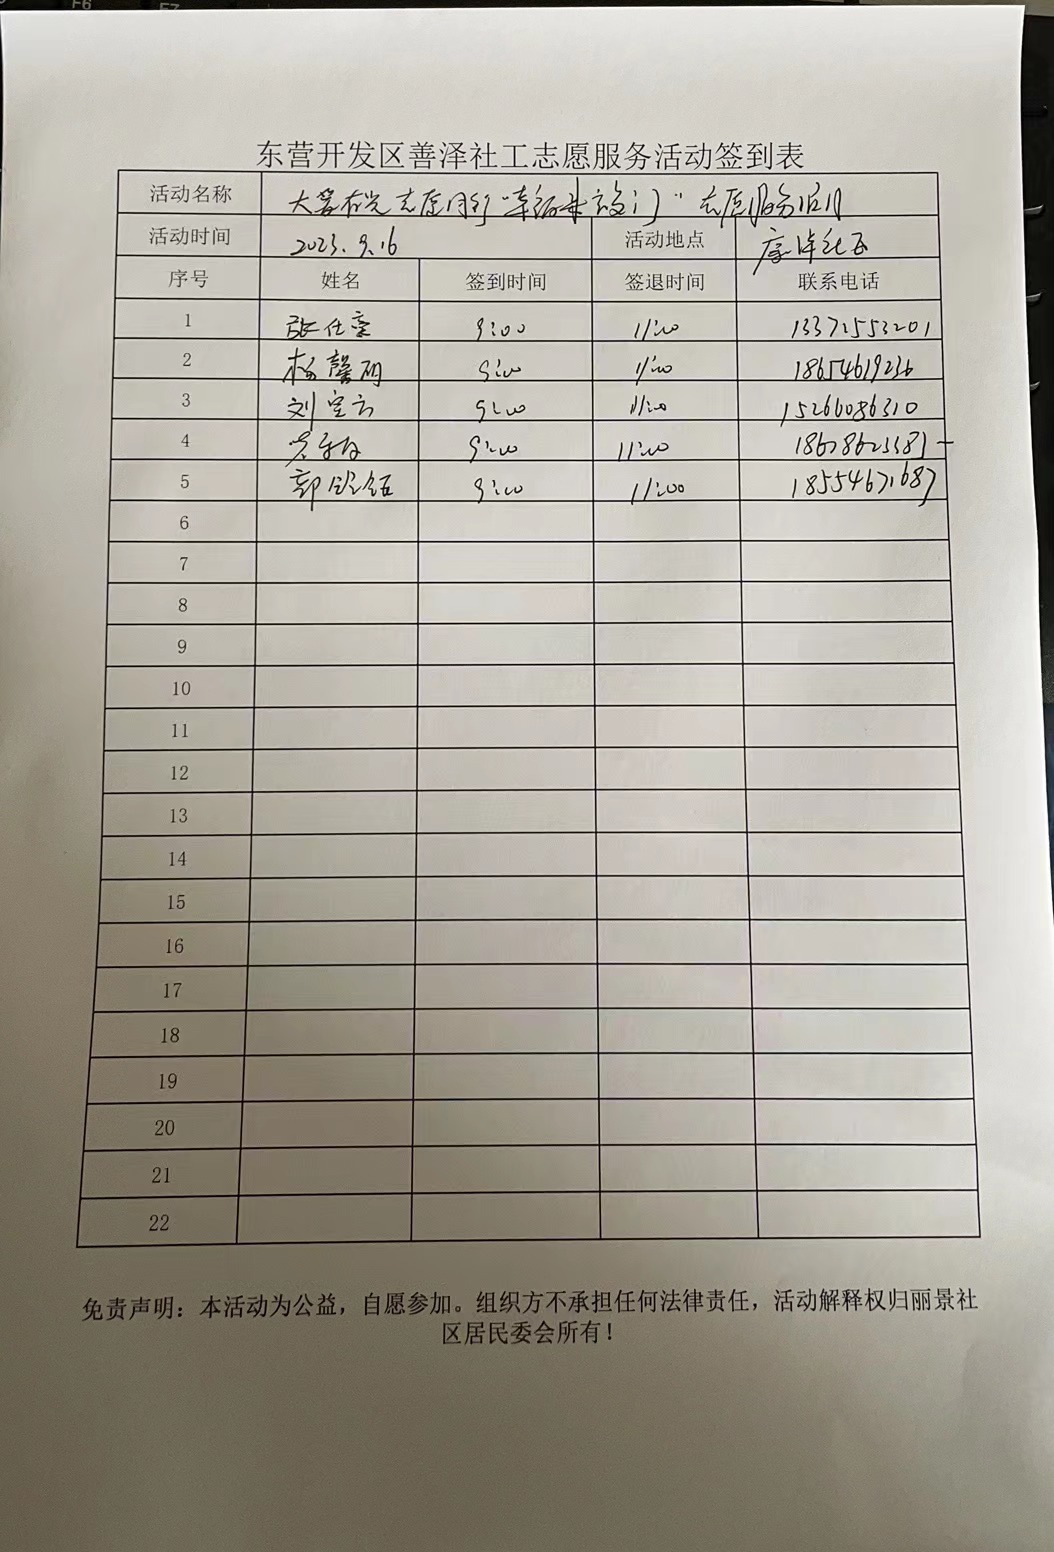 东营开发区善泽社工志愿服务活动签到表
活动名称 志愿同行 志愿服务
活动时间 2023.9.16 活动地点
序号 姓名 签到时间 签退时间 联系电话
1 张仕 9:00 11:00 13371553201
2 杨馨 9:00 11:00 18654619236
3 刘 9:00 11:00 15266086310
4 9:00 11:00
5 郭 9:00 11:00 18554671687
6
7
8
9
10
11
12
13
14
15
16
17
18
19
20
21
22
免责声明：本活动为公益，自愿参加。组织方不承担任何法律责任，活动解释权归丽景社
区居民委会所有！